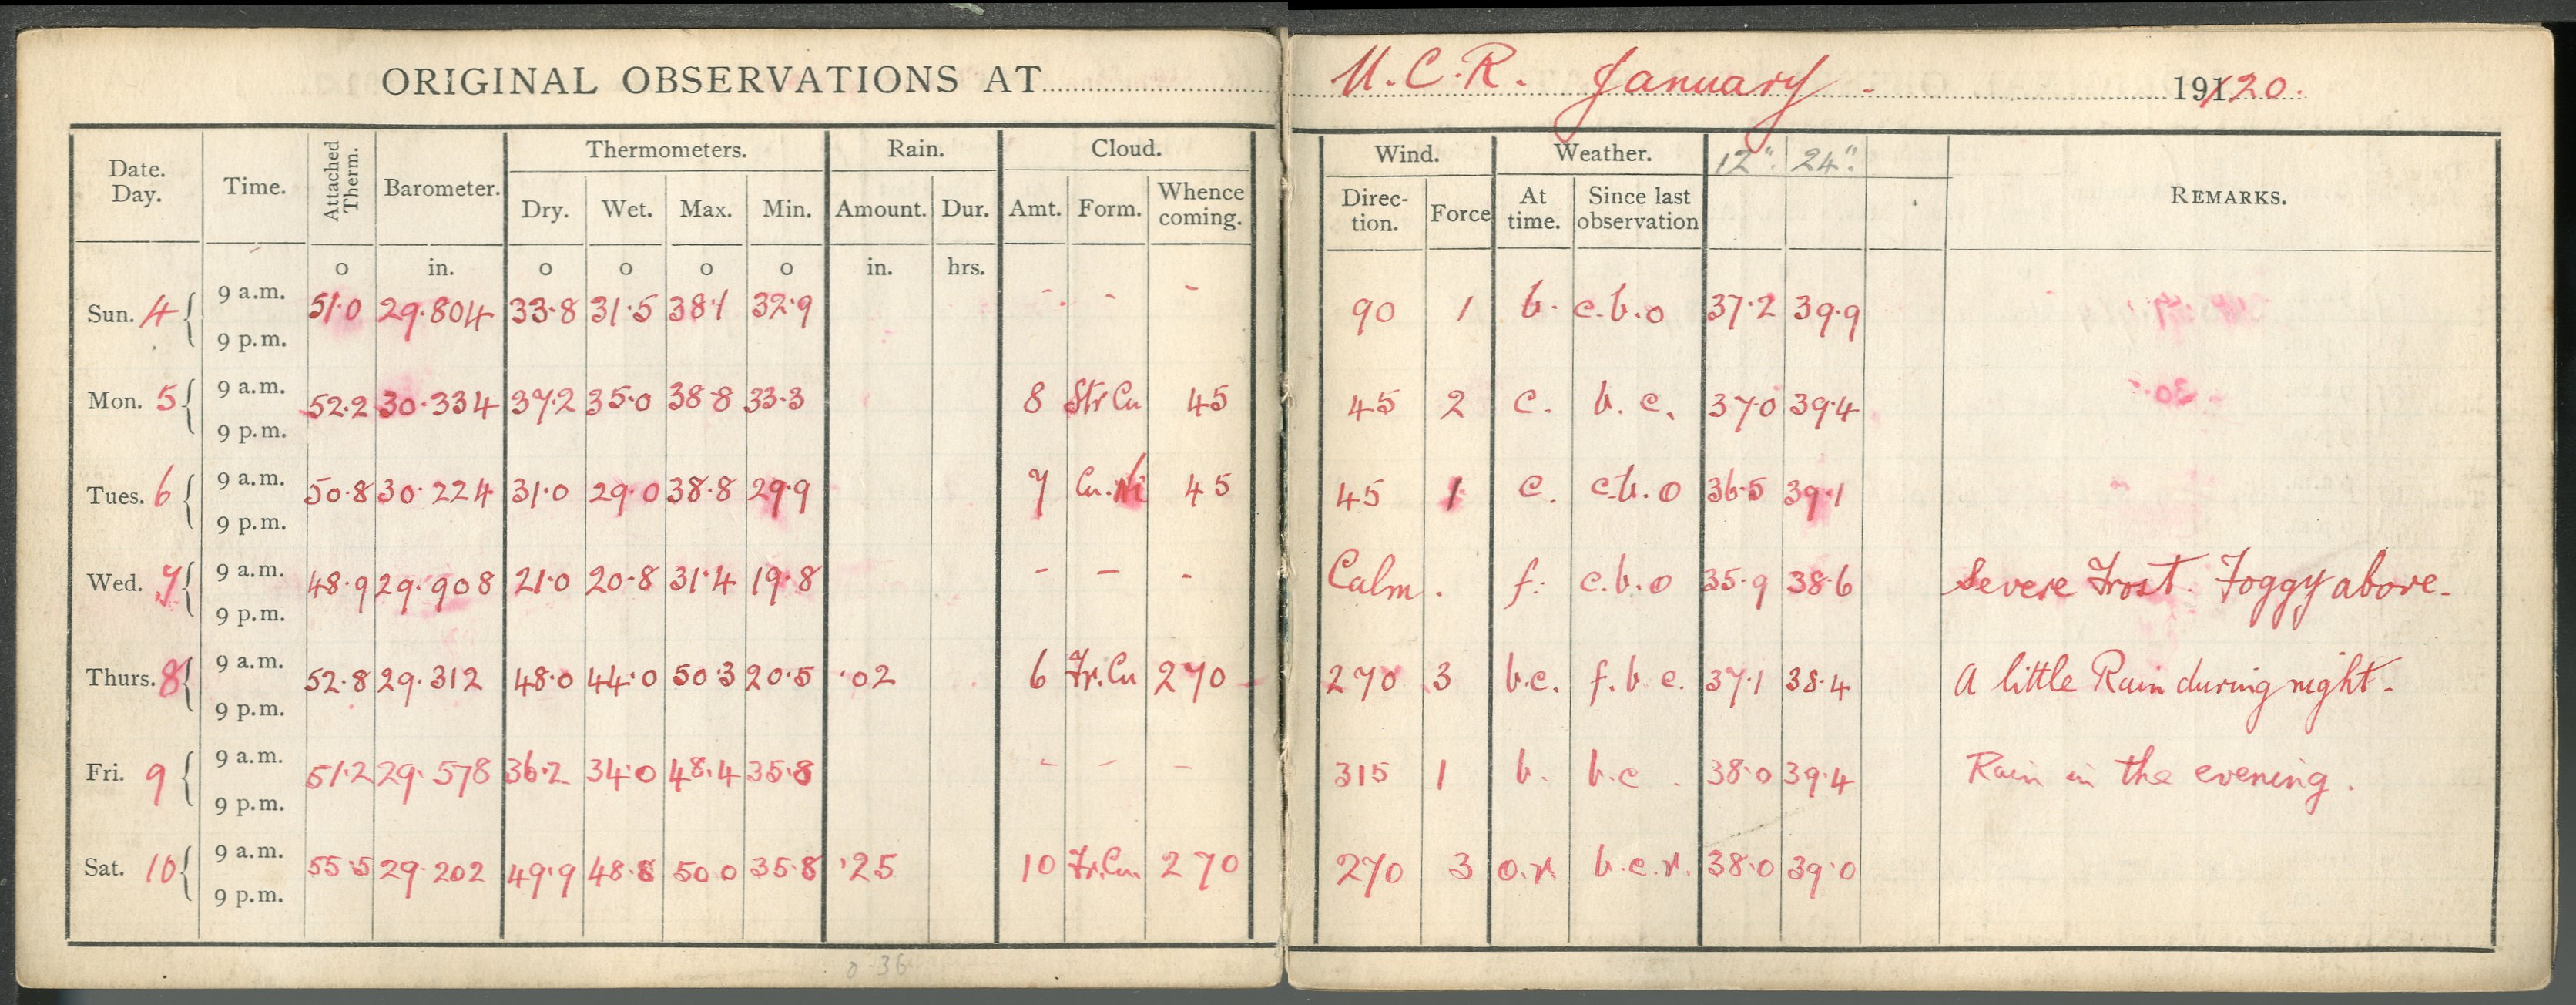 ORIGINAL OBSERVATIONS AT U.C.R. January. 1920.
Date. Day. Time. Attached Therm. Barometer. Thermometers. Rain. Cloud. Wind. Weather. 12". 24". REMARKS.
Dry. Wet. Max. Min. Amount. Dur. Amt. Form. Whence coming. Direction. Force At time. Since last observation
o in. o o o o in. hrs.
Sun. 4 9 a.m. 51.0 29.804 33.8 31.5 38.1 32.9 - - - 90 1 b. c.b.o 37.2 39.9
9 p.m.
Mon. 5 9 a.m. 52.2 30.334 37.2 35.0 38.8 33.3 8 Str Cu 45 45 2 c. b.c. 37.0 39.4
9 p.m.
Tues. 6 9 a.m. 50.8 30.224 31.0 29.0 38.8 29.9 7 Cu. 45 45 1 c. c.b.o 36.5 39.1
9 p.m.
Wed. 7 9 a.m. 48.9 29.908 21.0 20.8 31.4 19.8 - - - Calm. f. c.b.o 35.9 38.6 Severe Frost. Foggy above.
9 p.m.
Thurs. 8 9 a.m. 52.8 29.312 48.0 44.0 50.3 20.5 .02 6 Fr.Cu 270 270 3 b.c. f.b.c. 37.1 38.4 A little Rain during night.
9 p.m.
Fri. 9 9 a.m. 51.2 29.578 36.2 34.0 48.4 35.8 - - - 315 1 b. b.c. 38.0 39.4 Rain in the evening.
9 p.m.
Sat. 10 9 a.m. 55.5 29.202 49.9 48.8 50.0 35.8 .25 10 Fr.Cu. 270 270 3 o.r. b.c.r. 38.0 39.0
9 p.m.
0.36